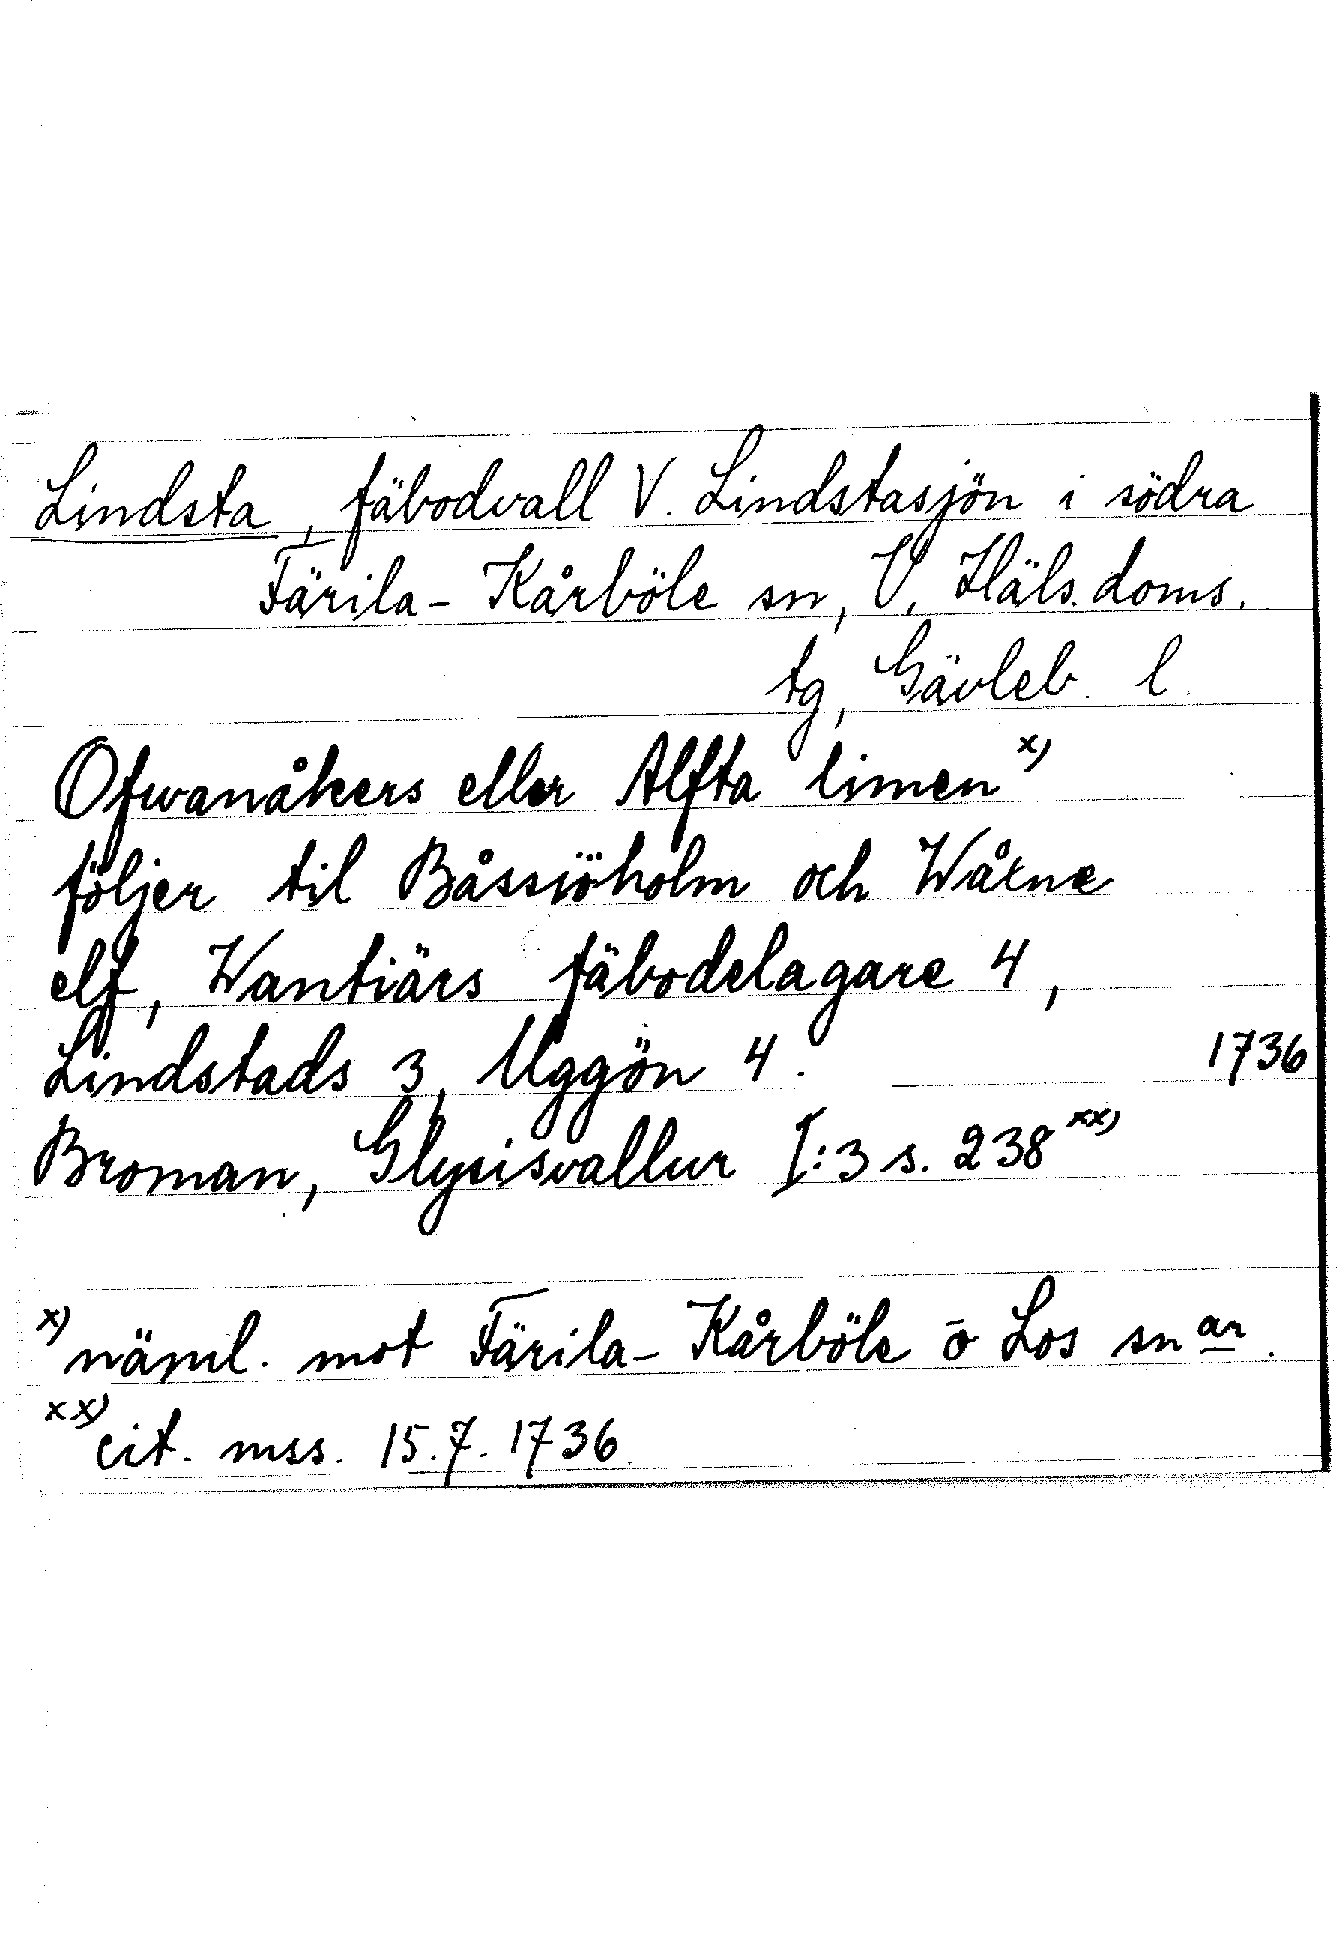 Lindsta, fäbodvall V. Lindstasjön i södra
Färila-Kårböle sn, V. Häls. doms.
tg, Gävleb. l.
Ofwanåkers eller Alfta limen x)
följer til Båssiöholm och Wåxne
elf, Wantiärs fäbodelagare 4,
Lindstads 3, Uggön 4. 1736
Broman, Glysisvallur I:3 s. 238 xx)
x) näml. mot Färila-Kårböle o Los snar.
xx) cit. mss. 15.7.1736.